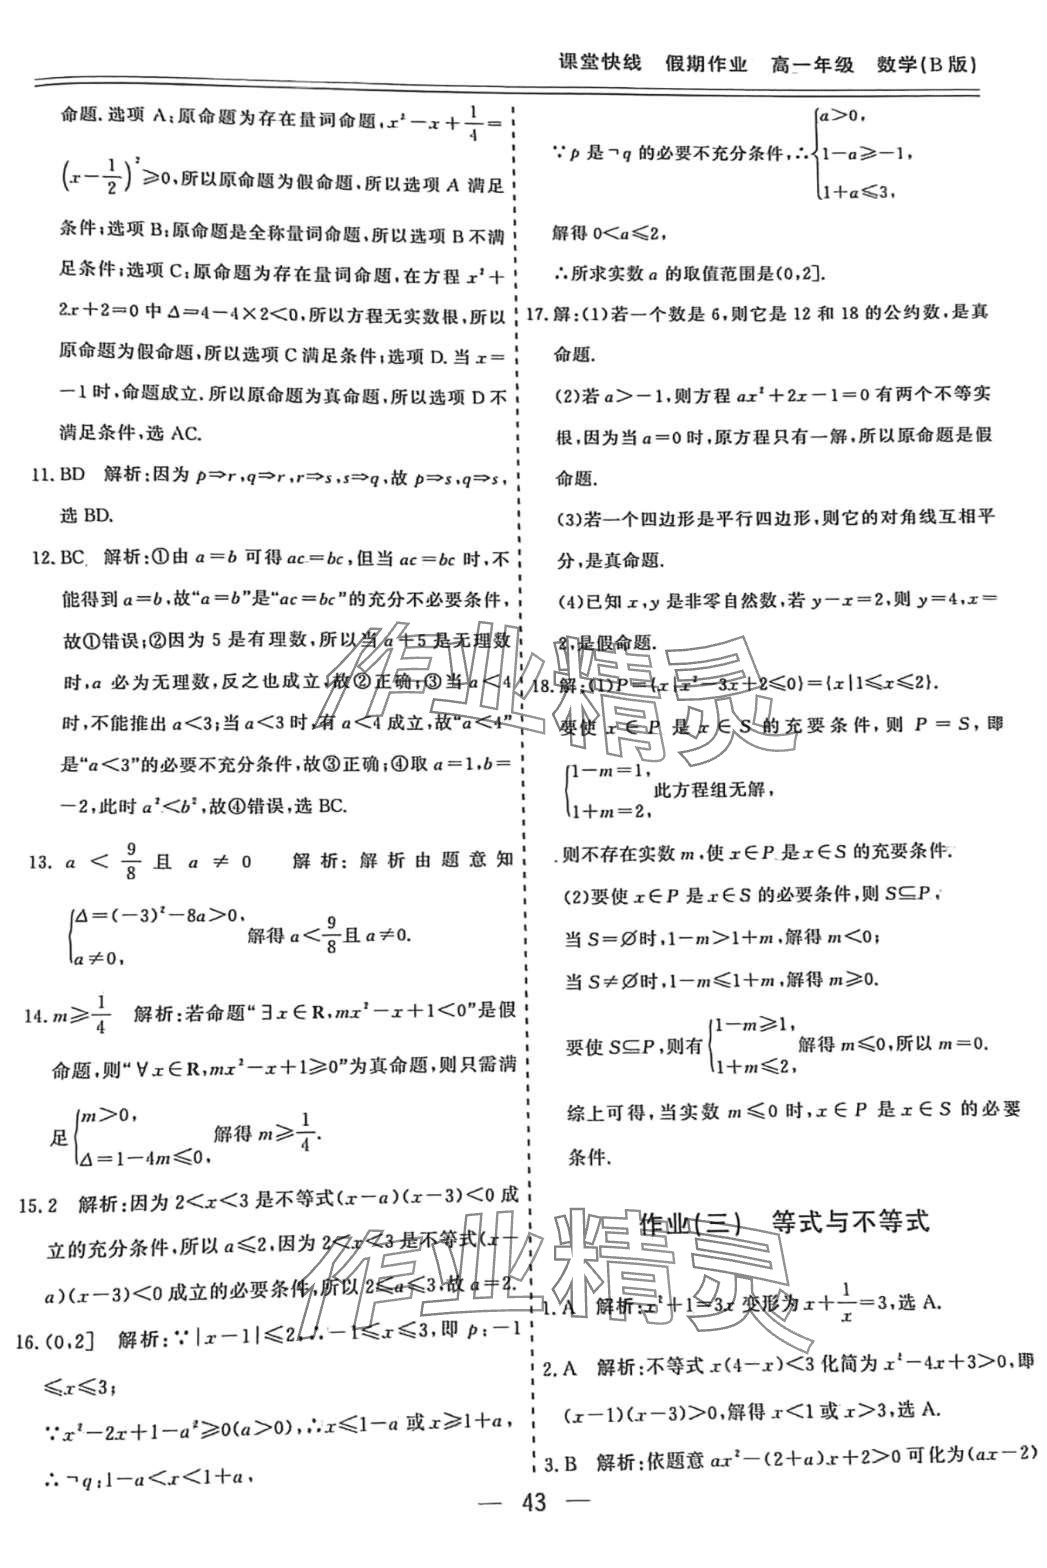 课堂快线 假期作业 高一年级 数学(B版)
命题.选项 A:原命题为存在量词命题,x²-x+1/4=
(x-1/2)²≥0,所以原命题为假命题,所以选项 A 满足
条件;选项 B:原命题是全称量词命题,所以选项 B 不满
足条件;选项 C:原命题为存在量词命题,在方程 x²+
2x+2=0 中 Δ=4-4×2<0,所以方程无实数根,所以
原命题为假命题,所以选项 C 满足条件;选项 D.当 x=
-1 时,命题成立.所以原命题为真命题,所以选项 D 不
满足条件,选 AC.
11. BD 解析:因为 p⇒r,q⇒r,r⇒s,s⇒q,故 p⇒s,q⇒s,
选 BD.
12. BC 解析:①由 a=b 可得 ac=bc,但当 ac=bc 时,不
能得到 a=b,故“a=b”是“ac=bc”的充分不必要条件,
故①错误;②因为 5 是有理数,所以当 a+5 是无理数
时,a 必为无理数,反之也成立,故②正确;③当 a<4
时,不能推出 a<3;当 a<3 时,有 a<4 成立,故“a<4”
是“a<3”的必要不充分条件,故③正确;④取 a=1,b=
-2,此时 a²<b²,故④错误,选 BC.
13. a < 9/8 且 a ≠ 0 解析:解析由题意知
{Δ=(-3)²-8a>0,
a≠0, 解得 a<9/8且 a≠0.
14. m≥1/4 解析:若命题“∃x∈R,mx²-x+1<0”是假
命题,则“∀x∈R,mx²-x+1≥0”为真命题,则只需满
足{m>0,
Δ=1-4m≤0, 解得 m≥1/4.
15. 2 解析:因为 2<x<3 是不等式(x-a)(x-3)<0 成
立的充分条件,所以 a≤2,因为 2<x<3 是不等式(x-
a)(x-3)<0 成立的必要条件,所以 2≤a≤3,故 a=2.
16. (0,2] 解析:∵|x-1|≤2,∴-1≤x≤3,即 p:-1
≤x≤3;
∵x²-2x+1-a²≥0(a>0),∴x≤1-a 或 x≥1+a,
∴¬q:1-a<x<1+a,
∵p 是¬q 的必要不充分条件,∴{a>0,
1-a≥-1,
1+a≤3,
解得 0<a≤2,
∴所求实数 a 的取值范围是(0,2].
17. 解:(1)若一个数是 6,则它是 12 和 18 的公约数,是真
命题.
(2)若 a>-1,则方程 ax²+2x-1=0 有两个不等实
根,因为当 a=0 时,原方程只有一解,所以原命题是假
命题.
(3)若一个四边形是平行四边形,则它的对角线互相平
分,是真命题.
(4)已知 x,y 是非零自然数,若 y-x=2,则 y=4,x=
2,是假命题.
18. 解:(1)P={x|x²-3x+2≤0}={x|1≤x≤2}.
要使 x∈P 是 x∈S 的充要条件,则 P=S,即
{1-m=1,
1+m=2, 此方程组无解,
则不存在实数 m,使 x∈P 是 x∈S 的充要条件.
(2)要使 x∈P 是 x∈S 的必要条件,则 S⊆P,
当 S=∅时,1-m>1+m,解得 m<0;
当 S≠∅时,1-m≤1+m,解得 m≥0.
要使 S⊆P,则有{1-m≥1,
1+m≤2, 解得 m≤0,所以 m=0.
综上可得,当实数 m≤0 时,x∈P 是 x∈S 的必要
条件.
作业(三) 等式与不等式
1. A 解析:x²+1=3x 变形为 x+1/x=3,选 A.
2. A 解析:不等式 x(4-x)<3 化简为 x²-4x+3>0,即
(x-1)(x-3)>0,解得 x<1 或 x>3,选 A.
3. B 解析:依题意 ax²-(2+a)x+2>0 可化为(ax-2)
— 43 —
作业精灵
作业精灵